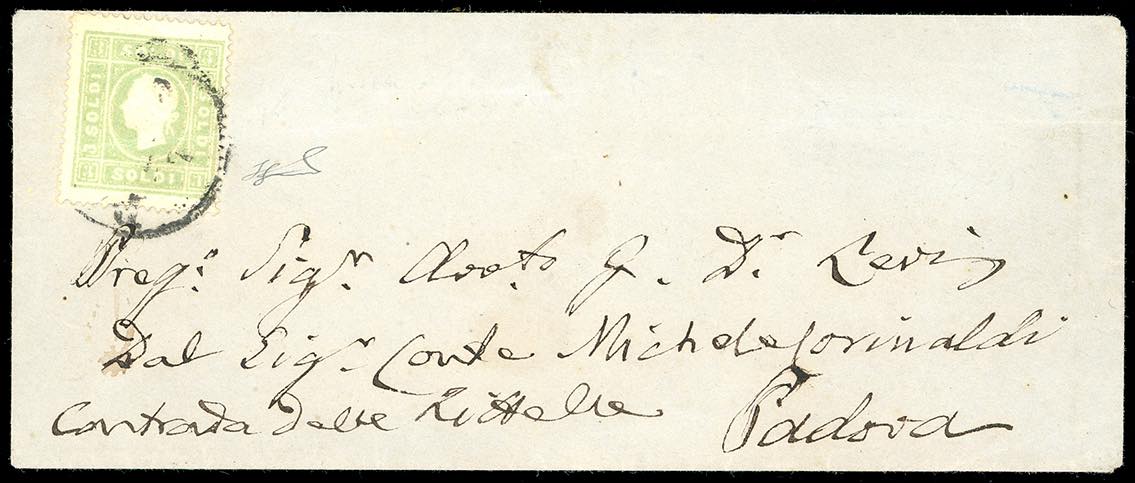 SOLDI
3 SOLDI
SOLDI
SOLDI
Preg.r Sig.r Avv.to G. D.r Levi
Dal Sig.r Conte Michele Corinaldi
Contrada delle Zittelle Padova